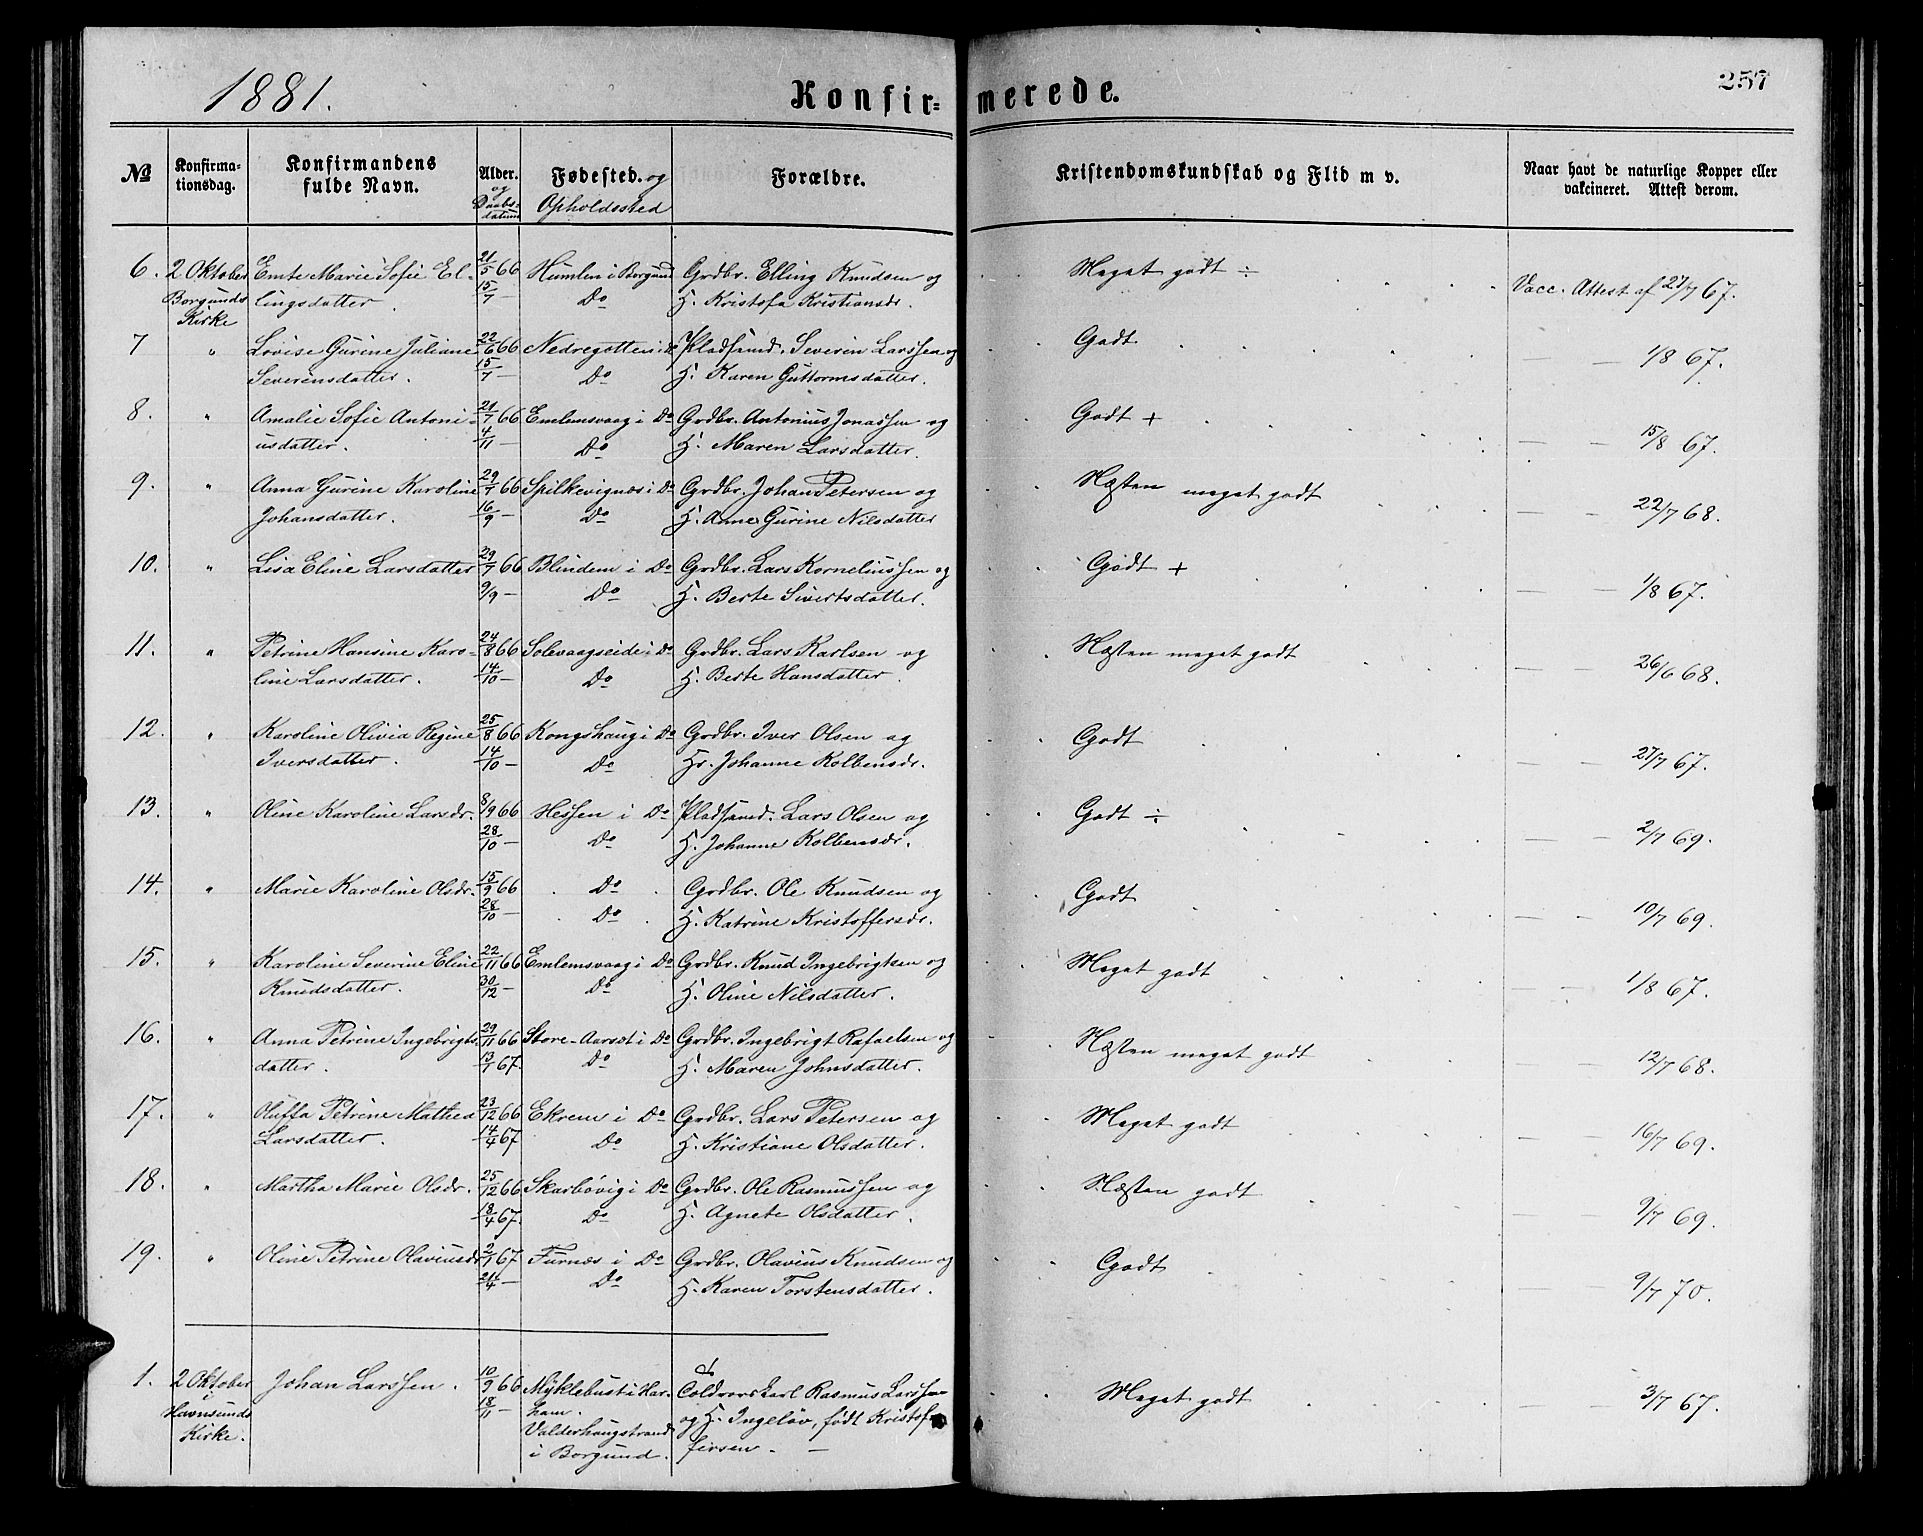 1881.
Konfir-
merede.
257
No
Konfirma-
tionsdag.
Konfirmandens
fulde Navn.
Alder.
og
Daabs-
datum
Fødested. og
Opholdssted
Forældre.
Kristendomskundskab og Flid m v.
Naar havt de naturlige Kopper eller
vakcineret. Attest derom.
6. 2 Oktober Emte Marie Sofie El- 21/5 66 Humlen i Borgund Grdbr. Elling Knudsen og Meget godt ÷ Vacc. Attest af 27/7 67.
Borgunds lingsdatter. 15/7 — Do H. Kristofa Kristiansdr.
Kirke
7 " Lovise Gurine Juliane 22/6 66 Nedregotten i Do Pladsmd. Severin Larssen og Godt — — 1/8 67.
Severinsdatter. 15/7 — Do H. Karen Guttormsdatter.
8. " Amalie Sofie Antoni- 21/7 66 Emlemsvaag i Do Grdbr. Antonius Jonassen og Godt + — — 15/8 67.
usdatter. 4/11 — Do H. Maren Larsdatter.
9. " Anna Gurine Karoline 29/7 66 Spilkevignæs i Do Grdbr. Johan Petersen og Næsten meget godt — — 22/7 68.
Johansdatter. 16/9 — Do H. Anne Gurine Nilsdatter
10. " Lisa Eline Larsdatter 29/7 66 Blindem i Do Grdbr. Lars Korneliussen og Godt + — — 1/8 67.
9/9 — Do H. Berte Sivertsdatter.
11. " Petrine Hansine Karo- 24/8 66 Solevaagseide i Do Grdbr. Lars Karlsen og Næsten meget godt — — 26/6 68.
line Larsdatter. 14/10 — Do H. Berte Hansdatter.
12. " Karoline Olivia Regine 25/8 66 Kongshaug i Do Grdbr. Iver Olsen og Godt — — 27/7 67.
Iversdatter. 14/10 — Do Hr. Johanne Kolbensdr.
13. " Oline Karoline Larsdr. 8/9 66 Hessen i Do Pladsmd. Lars Olsen og Godt ÷ — — 2/7 69.
28/10 — Do H. Johanne Kolbensdr.
14. " Marie Karoline Olsdr. 15/9 66 Do Grdbr. Ole Knudsen og Godt — — 10/7 69.
28/10 — Do H. Katrine Kristoffersdr.
15. " Karoline Severine Eline 22/11 66 Emlemsvaag i Do Grdbr. Knud Ingebrigtsen og Meget godt — — 1/8 67.
Knudsdatter. 30/12 — Do H. Oline Nilsdatter.
16. " Anna Petrine Ingebrigts- 29/11 66 Store-Aarset i Do Grdbr. Ingebrigt Rafaelsen og Næsten meget godt — — 12/7 68.
datter. 13/1 67. Do H. Maren Johnsdatter.
17. " Oluffa Petrine Mathea 23/12 66 Ekrem i Do Grdbr. Lars Petersen og Meget godt — — 16/7 69.
Larsdatter. 14/4 67 Do H. Kristiane Olsdatter.
18. " Martha Marie Olsdr. 25/12 66 Skarbövig i Do Grdbr. Ole Rasmussen og Næsten godt — — 9/7 69.
18/4 67. Do H. Agnete Olsdatter.
19. " Oline Petrine Olaviusdr 2/1 67 Furnæs i Do Grdbr. Olavius Knudsen og Godt — — 9/7 70.
21/4 — Do H. Karen Torstensdatter.
1. 2 Oktober Johan Larssen. 10/9 66 Myklebust i Har- Coldrorskarl Rasmus Larssen Meget godt 3/7 67.
i 18/11 — ham. og H. Ingeløv, født Kristof-
Havnsunds Valderhaugstrand fersen. —
Kirke. i Borgund.